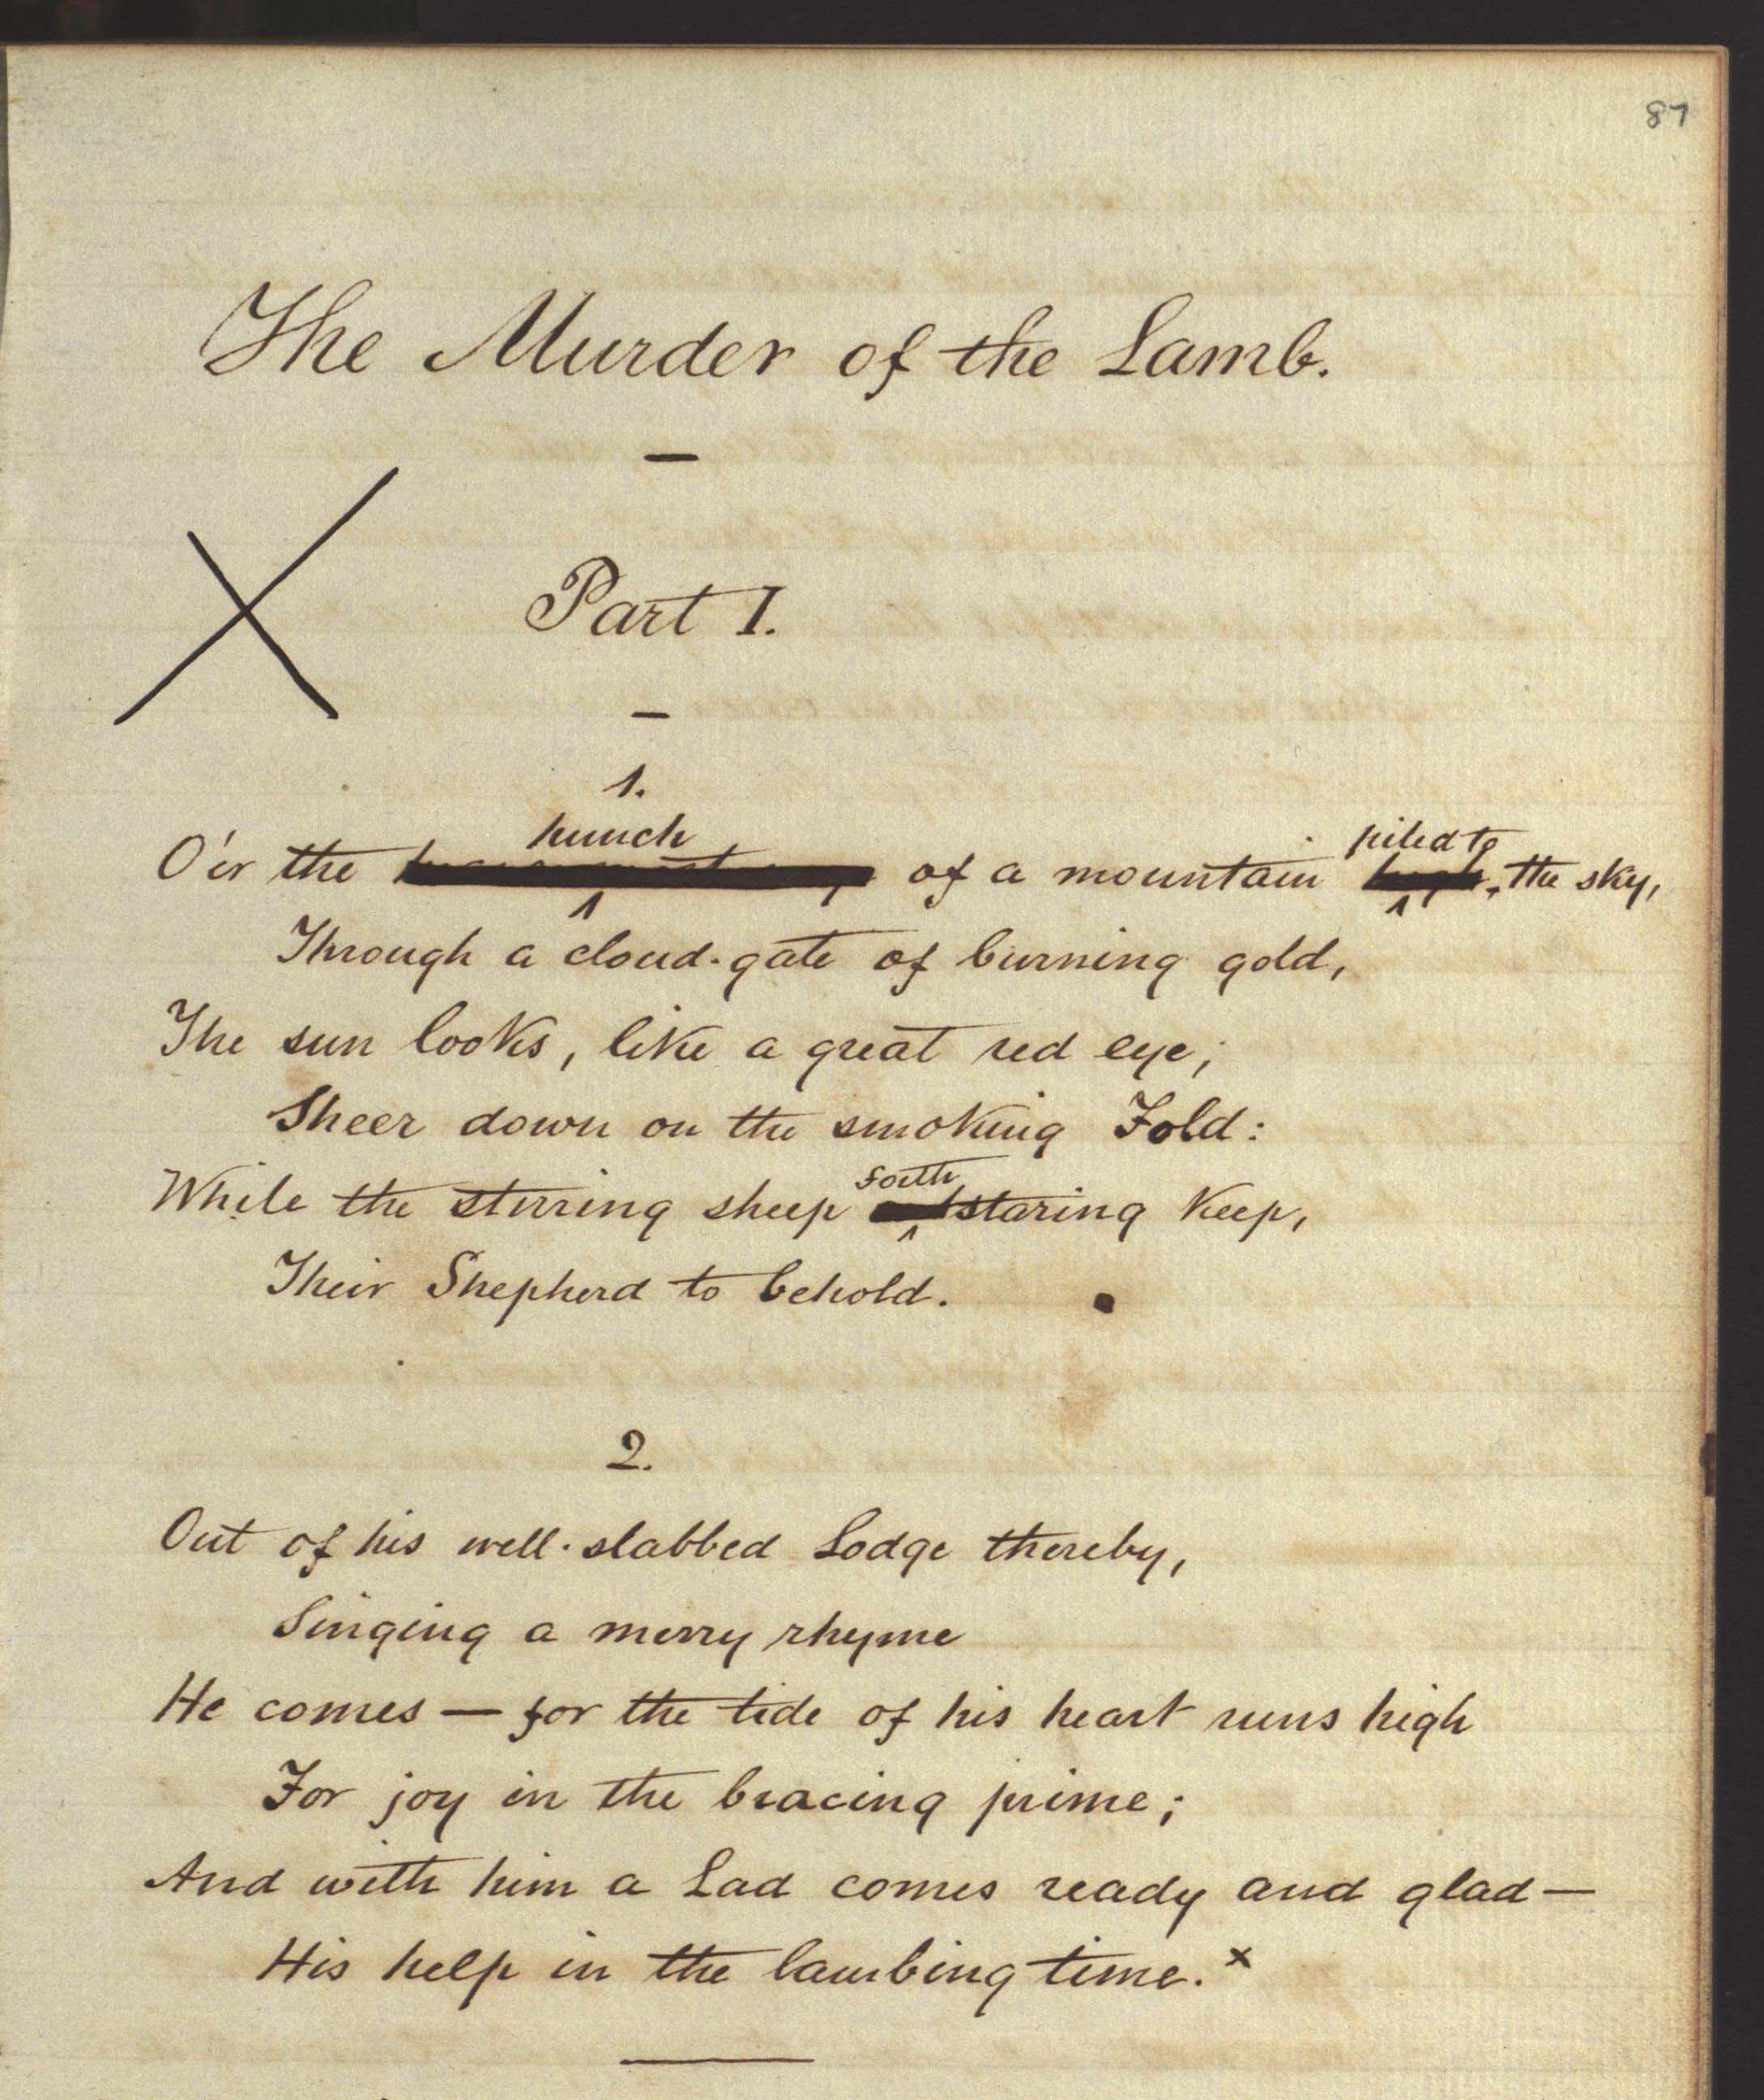 87
The Murder of the Lamb.
Part I.
1.
O'er the hunch of a mountain piled to the sky,
Through a cloud-gate of burning gold,
The sun looks, like a great red eye;
Sheer down on the smoking Fold:
While the stirring sheep forth staring keep,
Their Shepherd to behold.
2.
Out of his well-slabbed Lodge thereby,
Singing a merry rhyme
He comes — for the tide of his heart runs high
For joy in the bracing prime;
And with him a Lad comes ready and glad —
His help in the lambing time. x